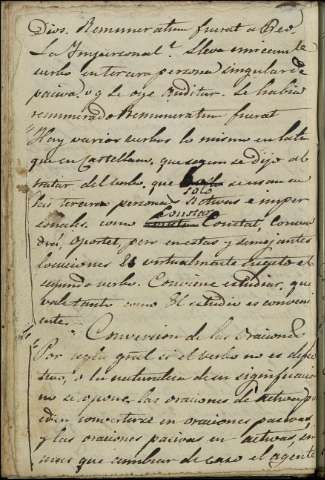 Dios. Remuneratum fuerat a Deo.
La Impersonal lleva
verbo en tercera persona singular de
pasiva. v.g. Se oye Auditur. Se habia
remunerado Remuneratum fuerat
Hay varios verbos lo mismo en latin
que en Castellano, que segun se dijo al
tratar del verbo, que solo se usan en
las terceras personas y imper
sonales. como Constar Constat, Conve
nir, Oportet, pero en estas y semejantes
locuciones es virtualmente sugeto el
segundo verbo. Conviene estudiar, que
vale tanto como El estudio es conveni
ente.
Conversion de las oraciones
Por regla gral si el verbo no es defec
tivo, o la naturaleza de su significacion
no se opone, las oraciones de activa pu
eden convertirse en oraciones pasivas
y las oraciones pasivas en activas, sin
mas que cambiar de caso el agente